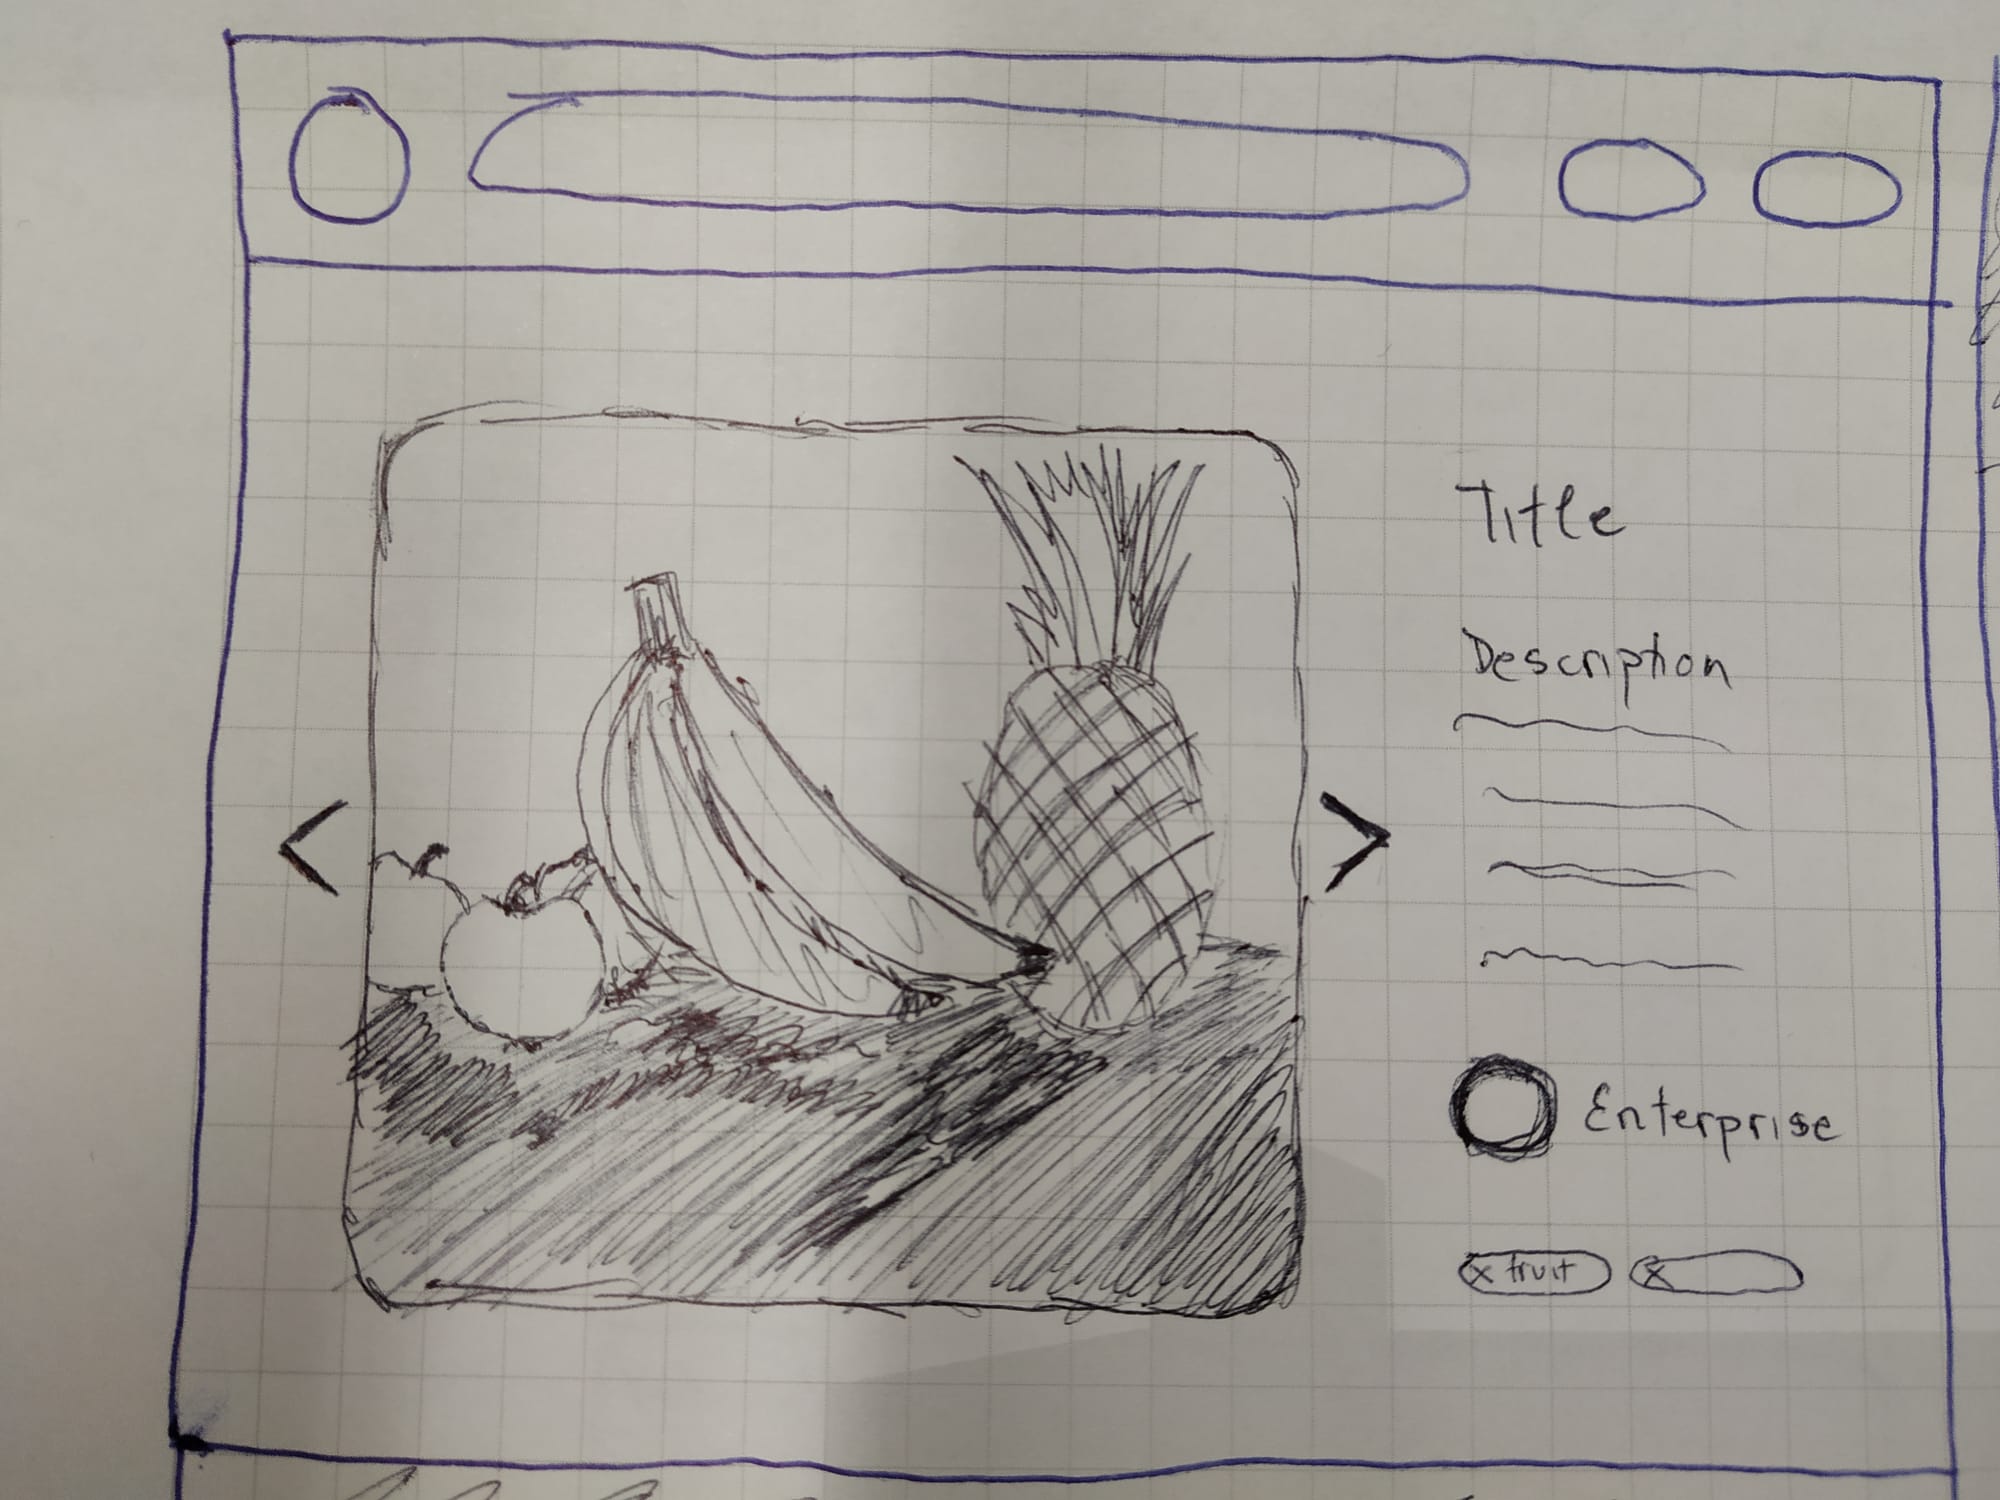 Title
Description
Enterprise
x fruit x